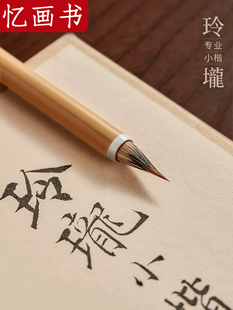 忆画书
玲
专业
小楷
瓏
玲瓏小楷